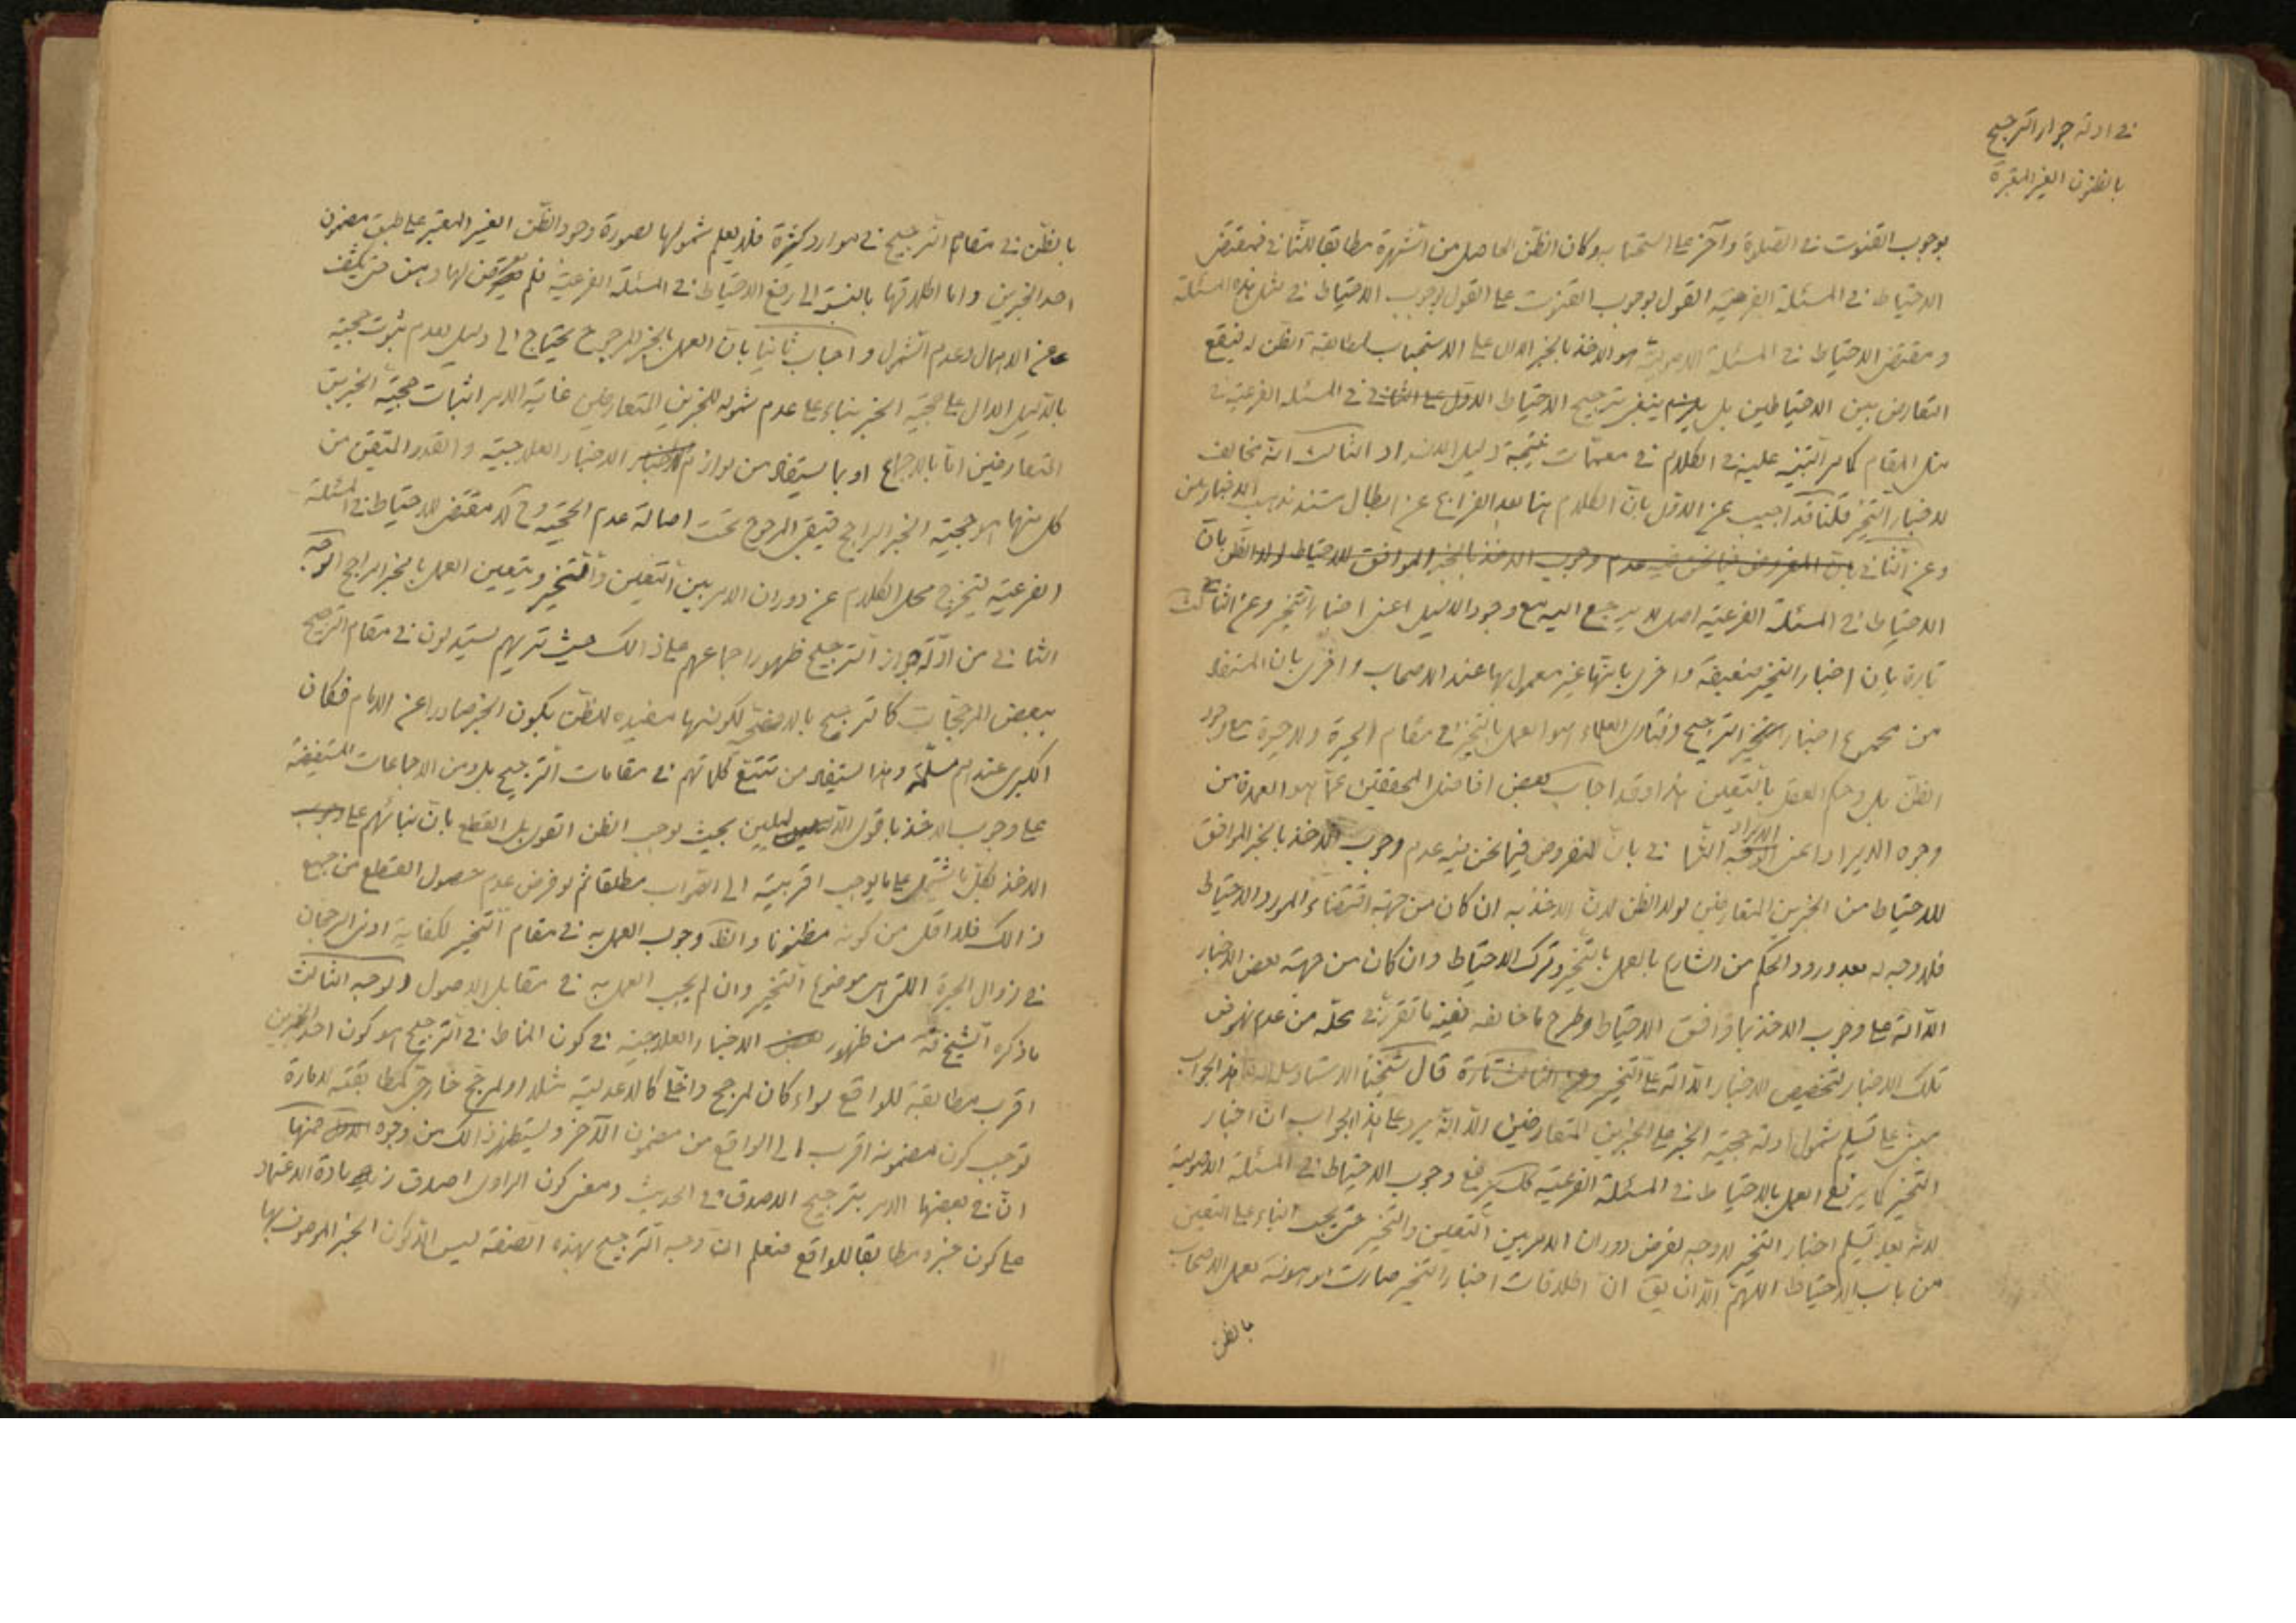 في ادلة جواز الترجيح
بالظنون الغير المعتبرة
بوجوب القنوت في الصلوة وآخر على استحبابه وكان الظن الحاصل من الشهرة مطابقا للثاني فمقتضى
الاحتياط في المسئلة الفرعية القول بوجوب القنوت على القول بوجوب الاحتياط في مثل هذه المسئلة
ومقتضى الاحتياط في المسئلة الاصولية هو الاخذ بالخبر الدال على الاستحباب لمطابقة الظن له فيقع
التعارض بين الاحتياطين بل يلزم ينبغي ترجيح الاحتياط الاول على الثاني في المسئلة الفرعية في
مثل المقام كما مر التنبيه عليه في الكلام في معممات نتيجة دليل الانسداد الثالث انه مخالف
لاخبار التخيير قلنا قد اجيب عن الاول بان الكلام هنا بعد الفراغ عن ابطال مستند مذهب الاخباريين
وعن الثاني بان المفروض فيما نحن فيه عدم وجوب الاخذ بالخبر الموافق للاحتياط لولا الظن بان
الاحتياط في المسئلة الفرعية اصل لا يرجع اليه مع وجود الدليل اعني اخبار التخيير وعن الثالث
تارة بان اخبار التخيير ضعيفة واخرى بانها غير معمول بها عند الاصحاب واخرى بان المستفاد
من مجموع اخبار التخيير الترجيح وفتاوى العلماء هو العمل بالتخيير في مقام الحيرة ولا حيرة مع وجود
الظن بل وحكم العقل بالتعيين هذا وقد اجاب بعض افاضل المحققين عما هو العمدة من
وجوه الايراد اعنى الوجه الايراد الثاني بان المفروض فيما نحن فيه عدم وجوب الاخذ بالخبر الموافق
للاحتياط من الخبرين المتعارضين لولا الظن لان الاخذ به ان كان من جهة اقتضاء المورد الاحتياط
فلا وجه له بعد ورود الحكم من الشارع بالعمل بالتخيير وترك الاحتياط وان كان من جهة بعض الاخبار
الدالة على وجوب الاخذ بما وافق الاحتياط وطرح ما خالفه ففيه ما تقرر في محله من عدم نهوض
تلك الاخبار لتخصيص الاخبار الدالة على التخيير وعن الثالث تارة قال شيخنا الاستاد هذا الجواب
مبني على تسليم شمول ادلة حجية الخبر على الخبرين المتعارضين يرد على هذا الجواب ان اخبار
التخيير كما يرفع العمل بالاحتياط في المسئلة الفرعية كك يرفع وجوب الاحتياط في المسئلة الاصولية
لانه بعد تسليم اخبار التخيير لا وجه لفرض دوران الامر بين التعيين والتخيير حتى يجب البناء على التعيين
من باب الاحتياط اللهم الا ان يق ان اطلاقات اخبار التخيير صارت موهونة بعمل الاصحاب
بالظن
بالظن في مقام الترجيح في موارد كثيرة فلا يعلم شمولها لصورة وجود الظن الغير المعتبر على طبق مضمون
احد الخبرين واما اطلاقها بالنسبة الى رفع الاحتياط في المسئلة الفرعية فلم لها وهن حتى يكشف
عن الاهمال وعدم الشمول واجاب ثانيا بان العمل بالخبر المرجوح يحتاج الى دليل لعدم ثبوت حجية
بالدليل الدال على حجية الخبر بناء على عدم شموله للخبرين المتعارضين غاية الامر اثبات حجية الخبرين
المتعارضين اما بالاجماع او بما يستفاد من لوازم الاخبار الاخبار العلاجية والقدر المتيقن من
كل منهما هو حجية الخبر الراجح فيبقى المرجوح تحت اصالة عدم الحجية وح لا مقتضى للاحتياط في المسئلة
الفرعية ليخرج محل الكلام عن دوران الامر بين التعيين والتخيير ويتعين العمل بالخبر الراجح الوجه
الثاني من ادلة جواز الترجيح ظهور اجماعهم على ذالك حيث تريهم يستدلون في مقام الترجيح
ببعض المرجحات كالترجيح بالافصحية لكونها مفيدة للظن بكون الخبر صادرا عن الامام فكان
الكبرى عندهم مسلمة وهذا يستفاد من تتبع كلماتهم في مقامات الترجيح بل ومن الاجماعات المستفيضة
على وجوب الاخذ باقوى الدليلين بحيث يوجب الظن القوى بل القطع بان بنائهم على وجوب
الاخذ بكل ما يشتمل على ما يوجب اقربيته الى الصواب مطلقا ثم لو فرض عدم حصول القطع من جميع
ذالك فلا اقل من كونه مظنونا والظ وجوب العمل به في مقام التخيير لكفاية ادنى الرجحان
في زوال الحيرة التي هي موضوع التخيير وان لم يجب العمل به في مقابل الاصول والوجه الثالث
ما ذكره الشيخ قده من ظهور بعض الاخبار العلاجية في كون المناط في الترجيح هو كون احد الخبرين
اقرب مطابقة للواقع سواء كان لمرجح داخلي كالاعدلية مثلا او لمرجح خارجي كمطابقته لامارة
توجب كون مضمونه اقرب الى الواقع من مضمون الآخر ويستظهر ذالك من وجوه الاول منها
ان في بعضها الامر بترجيح الاصدق في الحديث ومعنى كون الراوى اصدق زيادة الاعتماد
على كون خبره مطابقا للواقع فنعلم ان وجه الترجيح بهذه الصفة ليس الا لكون الخبر الموصوف بها